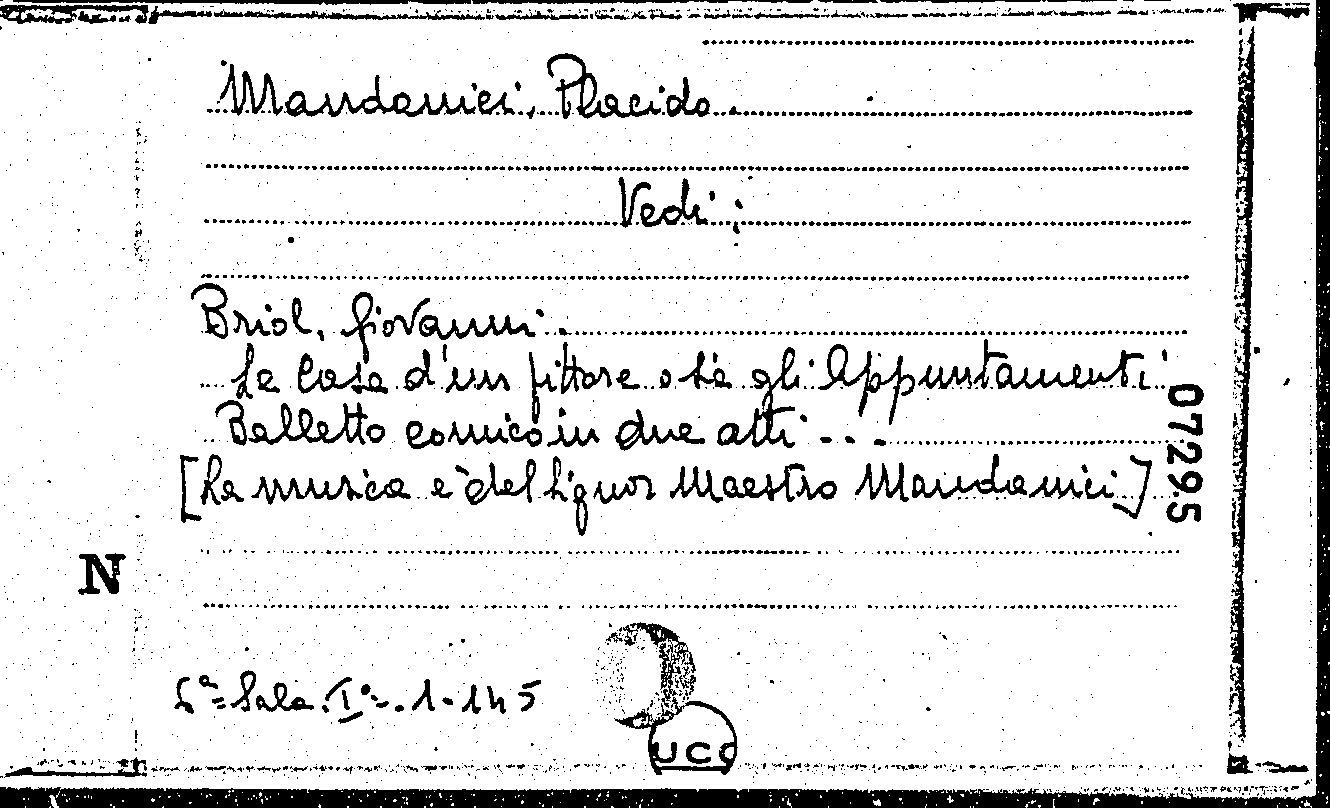 Mandanici, Placido.
Vedi:
Briol, Giovanni.
La Casa d'un pittore o sia gli Appuntamenti
Balletto comico in due atti...
[La musica è del Signor Maestro Mandanici]
07295
N
Sala. I°-. 1-145
UCC